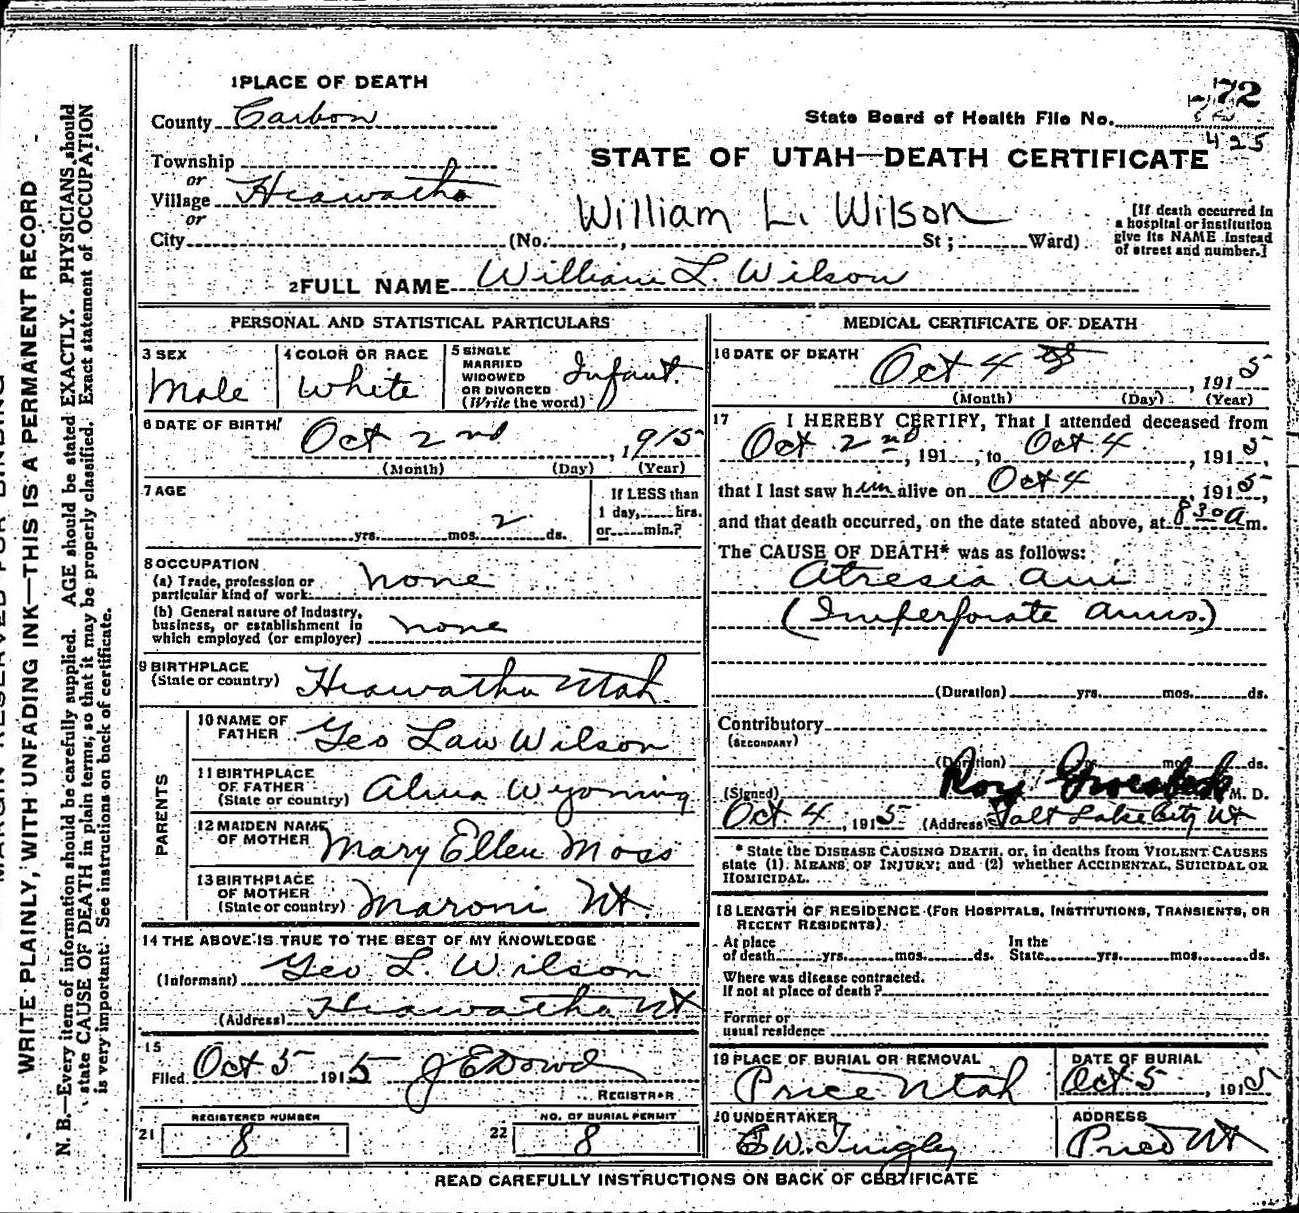 1 PLACE OF DEATH
County Carbon
Township
or
Village Hiawatha
or
City (No. , St ; Ward)
72
State Board of Health File No.
425
STATE OF UTAH—DEATH CERTIFICATE
William L. Wilson
[If death occurred in
a hospital or institution
give its NAME instead
of street and number.]
2 FULL NAME William L. Wilson
PERSONAL AND STATISTICAL PARTICULARS
3 SEX
Male
4 COLOR OR RACE
White
5 SINGLE
MARRIED
WIDOWED
OR DIVORCED
(Write the word)
Infant.
6 DATE OF BIRTH
Oct 2nd , 1915
(Month) (Day) (Year)
7 AGE
yrs. mos. 2 ds.
If LESS than
1 day, hrs.
or min.?
8 OCCUPATION
(a) Trade, profession or
particular kind of work none
(b) General nature of Industry,
business, or establishment in
which employed (or employer) none
9 BIRTHPLACE
(State or country) Hiawatha Utah
PARENTS
10 NAME OF
FATHER Geo Law Wilson
11 BIRTHPLACE
OF FATHER
(State or country) Alma Wyoming
12 MAIDEN NAME
OF MOTHER Mary Ellen Moss
13 BIRTHPLACE
OF MOTHER
(State or country) Maroni Ut.
14 THE ABOVE IS TRUE TO THE BEST OF MY KNOWLEDGE
(Informant) Geo L. Wilson
(Address) Hiawatha Ut
15
Filed Oct 5 1915 J E Dowd
REGISTRAR
REGISTERED NUMBER
21 8
NO. OF BURIAL PERMIT
22 8
MEDICAL CERTIFICATE OF DEATH
16 DATE OF DEATH
Oct 4 , 1915
(Month) (Day) (Year)
17 I HEREBY CERTIFY, That I attended deceased from
Oct 2nd, 191 , to Oct 4 , 1915,
that I last saw him alive on Oct 4 , 1915,
and that death occurred, on the date stated above, at 8 30 a m.
The CAUSE OF DEATH* was as follows:
Atresia ani
(Imperforate anus.)
(Duration) yrs. mos. ds.
Contributory
(SECONDARY)
(Duration) yrs. mos. ds.
(Signed) Roy Groesbeck M. D.
Oct 4, 1915 (Address) Salt Lake City Ut
* State the DISEASE CAUSING DEATH, or, in deaths from VIOLENT CAUSES
state (1) MEANS OF INJURY; and (2) whether ACCIDENTAL, SUICIDAL OR
HOMICIDAL.
18 LENGTH OF RESIDENCE (FOR HOSPITALS, INSTITUTIONS, TRANSIENTS, OR
RECENT RESIDENTS).
At place
of death yrs. mos. ds.
In the
State yrs. mos. ds.
Where was disease contracted.
If not at place of death?
Former or
usual residence
19 PLACE OF BURIAL OR REMOVAL
Price Utah
DATE OF BURIAL
Oct 5 , 1915
20 UNDERTAKER
E. W. Tingley
ADDRESS
Price Ut
READ CAREFULLY INSTRUCTIONS ON BACK OF CERTIFICATE
WRITE PLAINLY, WITH UNFADING INK—THIS IS A PERMANENT RECORD
N. B.—Every item of information should be carefully supplied. AGE should be stated EXACTLY. PHYSICIANS should
state CAUSE OF DEATH in plain terms, so that it may be properly classified. Exact statement of OCCUPATION
is very important. See instructions on back of certificate.